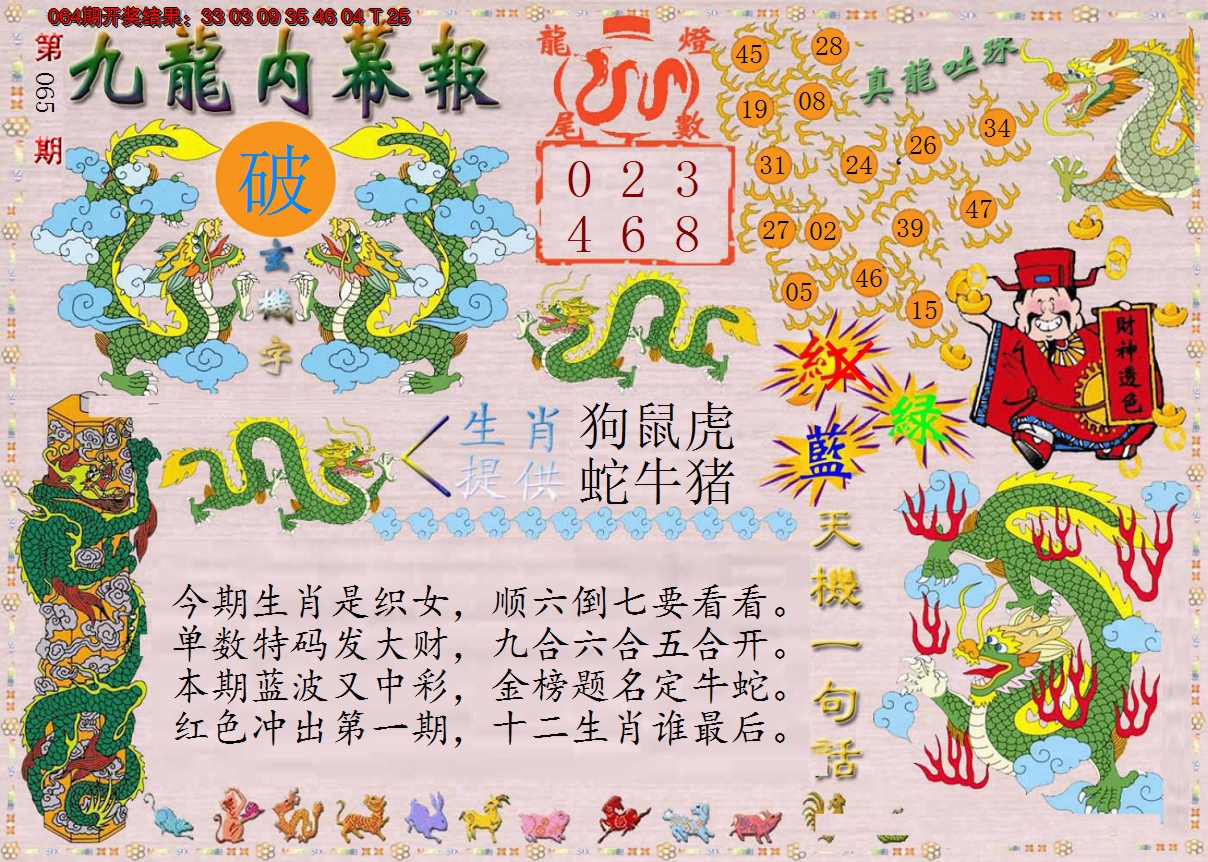 064期开奖结果：33 03 09 35 46 04 T 25
第065期
九龍内幕報
破
玄機字
龍燈
尾數
0 2 3
4 6 8
真龍吐珠
45 28
19 08
34
26
31 24
47
27 02 39
46
05
15
紅
綠
藍
財神透色
生肖 狗鼠虎
提供 蛇牛猪
天機一句话
今期生肖是织女，顺六倒七要看看。
单数特码发大财，九合六合五合开。
本期蓝波又中彩，金榜题名定牛蛇。
红色冲出第一期，十二生肖谁最后。